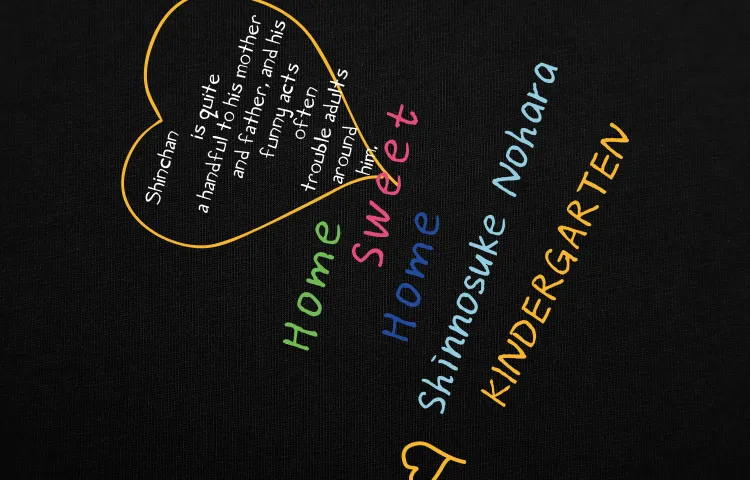 Shinchan
is quite
a handful to his mother
and father, and his
funny acts
often
trouble adults
around
him.
Home
Sweet
Home
Shinnosuke Nohara
KINDERGARTEN